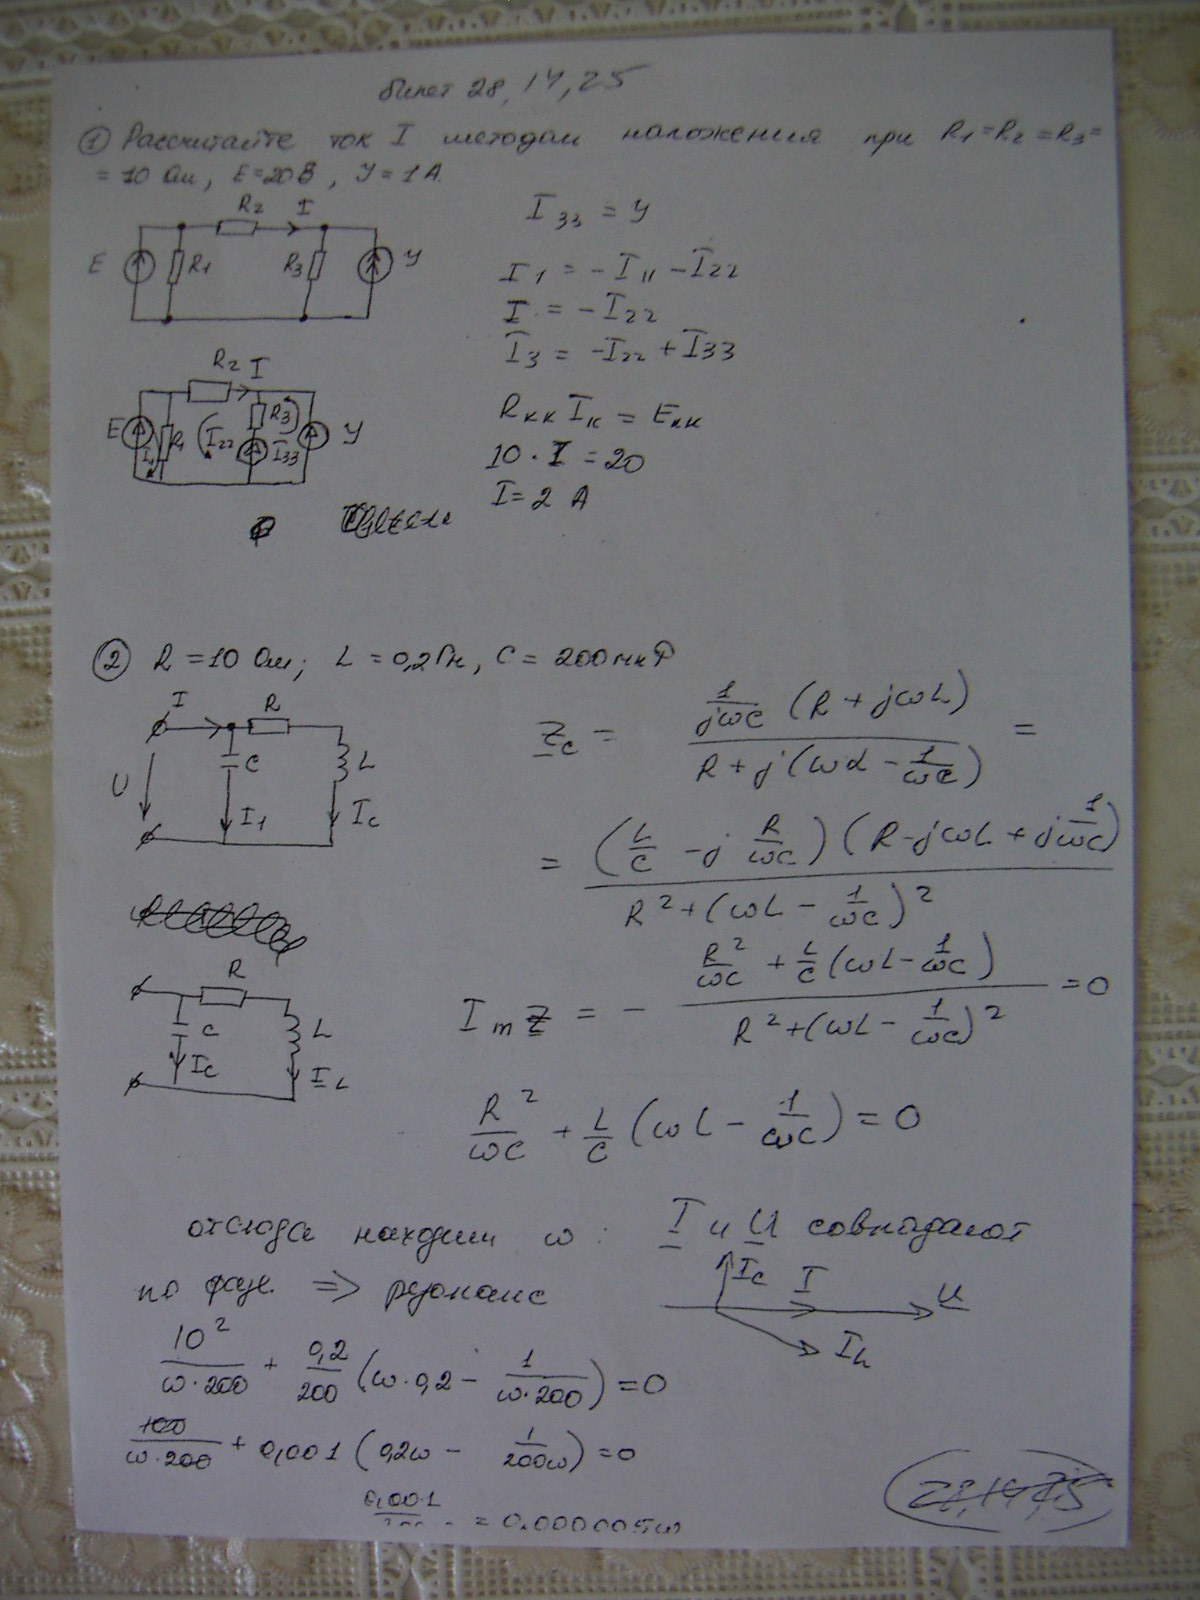 билет 28, 14, 25
① Рассчитайте ток I методом наложения при R₁=R₂=R₃=
= 10 Ом, E=20В, У=1А.
R₂ I
E R₁ R₃ У
I₃₃ = У
I₁ = -I₁₁ - I₂₂
I = -I₂₂
I₃ = -I₂₂ + I₃₃
R₂ I
E I₁₁ R₁ I₂₂ R₃ I₃₃ У
Rкк Iк = Eкк
10 · I = 20
I = 2 А
② R = 10 Ом; L = 0,2 Гн, C = 200 мкФ
I R
U C L
I₁ I_c
Z_c = \frac{\frac{1}{jωC} (R + jωL)}{R + j(ωL - \frac{1}{ωC})} =
= \frac{(\frac{L}{C} - j\frac{R}{ωC})(R - jωL + j\frac{1}{ωC})}{R² + (ωL - \frac{1}{ωC})²}
R
C L
I_c I_L
I_m Z = - \frac{\frac{R²}{ωC} + \frac{L}{C}(ωL - \frac{1}{ωC})}{R² + (ωL - \frac{1}{ωC})²} = 0
\frac{R²}{ωC} + \frac{L}{C}(ωL - \frac{1}{ωC}) = 0
отсюда находим ω: I и U совпадают
по фазе ⇒ резонанс
I_c I U
I_L
\frac{10²}{ω·200} + \frac{0,2}{200}(ω·0,2 - \frac{1}{ω·200}) = 0
\frac{100}{ω·200} + 0,001(0,2ω - \frac{1}{200ω}) = 0
= 0.000005ω
28,14,25